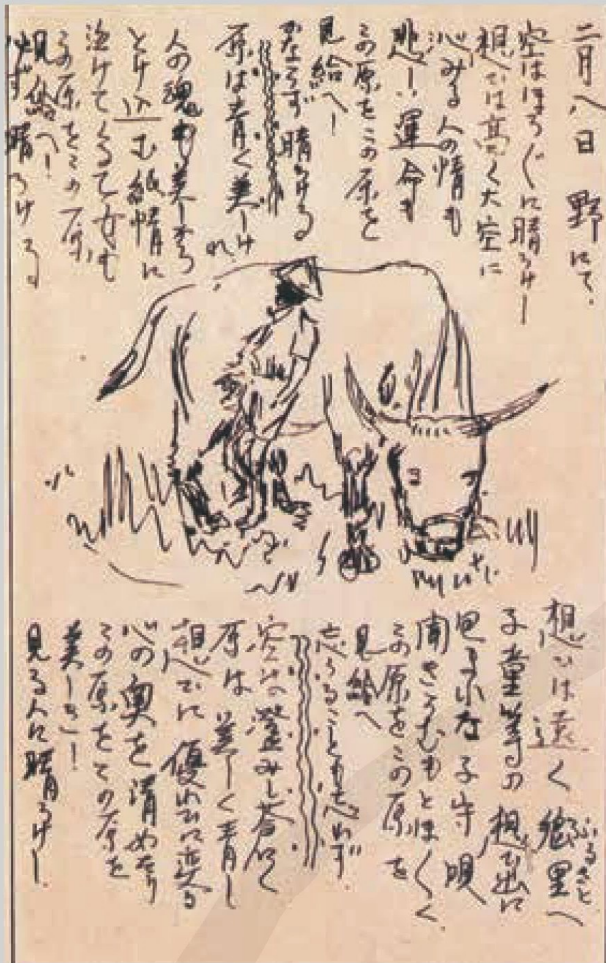 二月八日 野にて、
空はほろぐに晴るけし
想ひは高く大空に
沁みる人の情も
悲しい運命も
この原をこの原を
見給へ!
かならず晴るける
原は青く美しけれ
人の魂も美しから
とけ込む純情に
泣けてくるて女も
この原をこの原
見給へ!
必ず晴るける。
想ひは遠く郷里へ
ふるさと
子童等の想ひ出に
子守唄
聞きつむもとほくく
この原をこの原を
見給へ
忘るることも忘れず
空は澄みし蒼く
原は美しく青し
想ひに優れひに変る
心の奥を清めたり
この原をこの原を
美しと!
見る人に晴るけし。